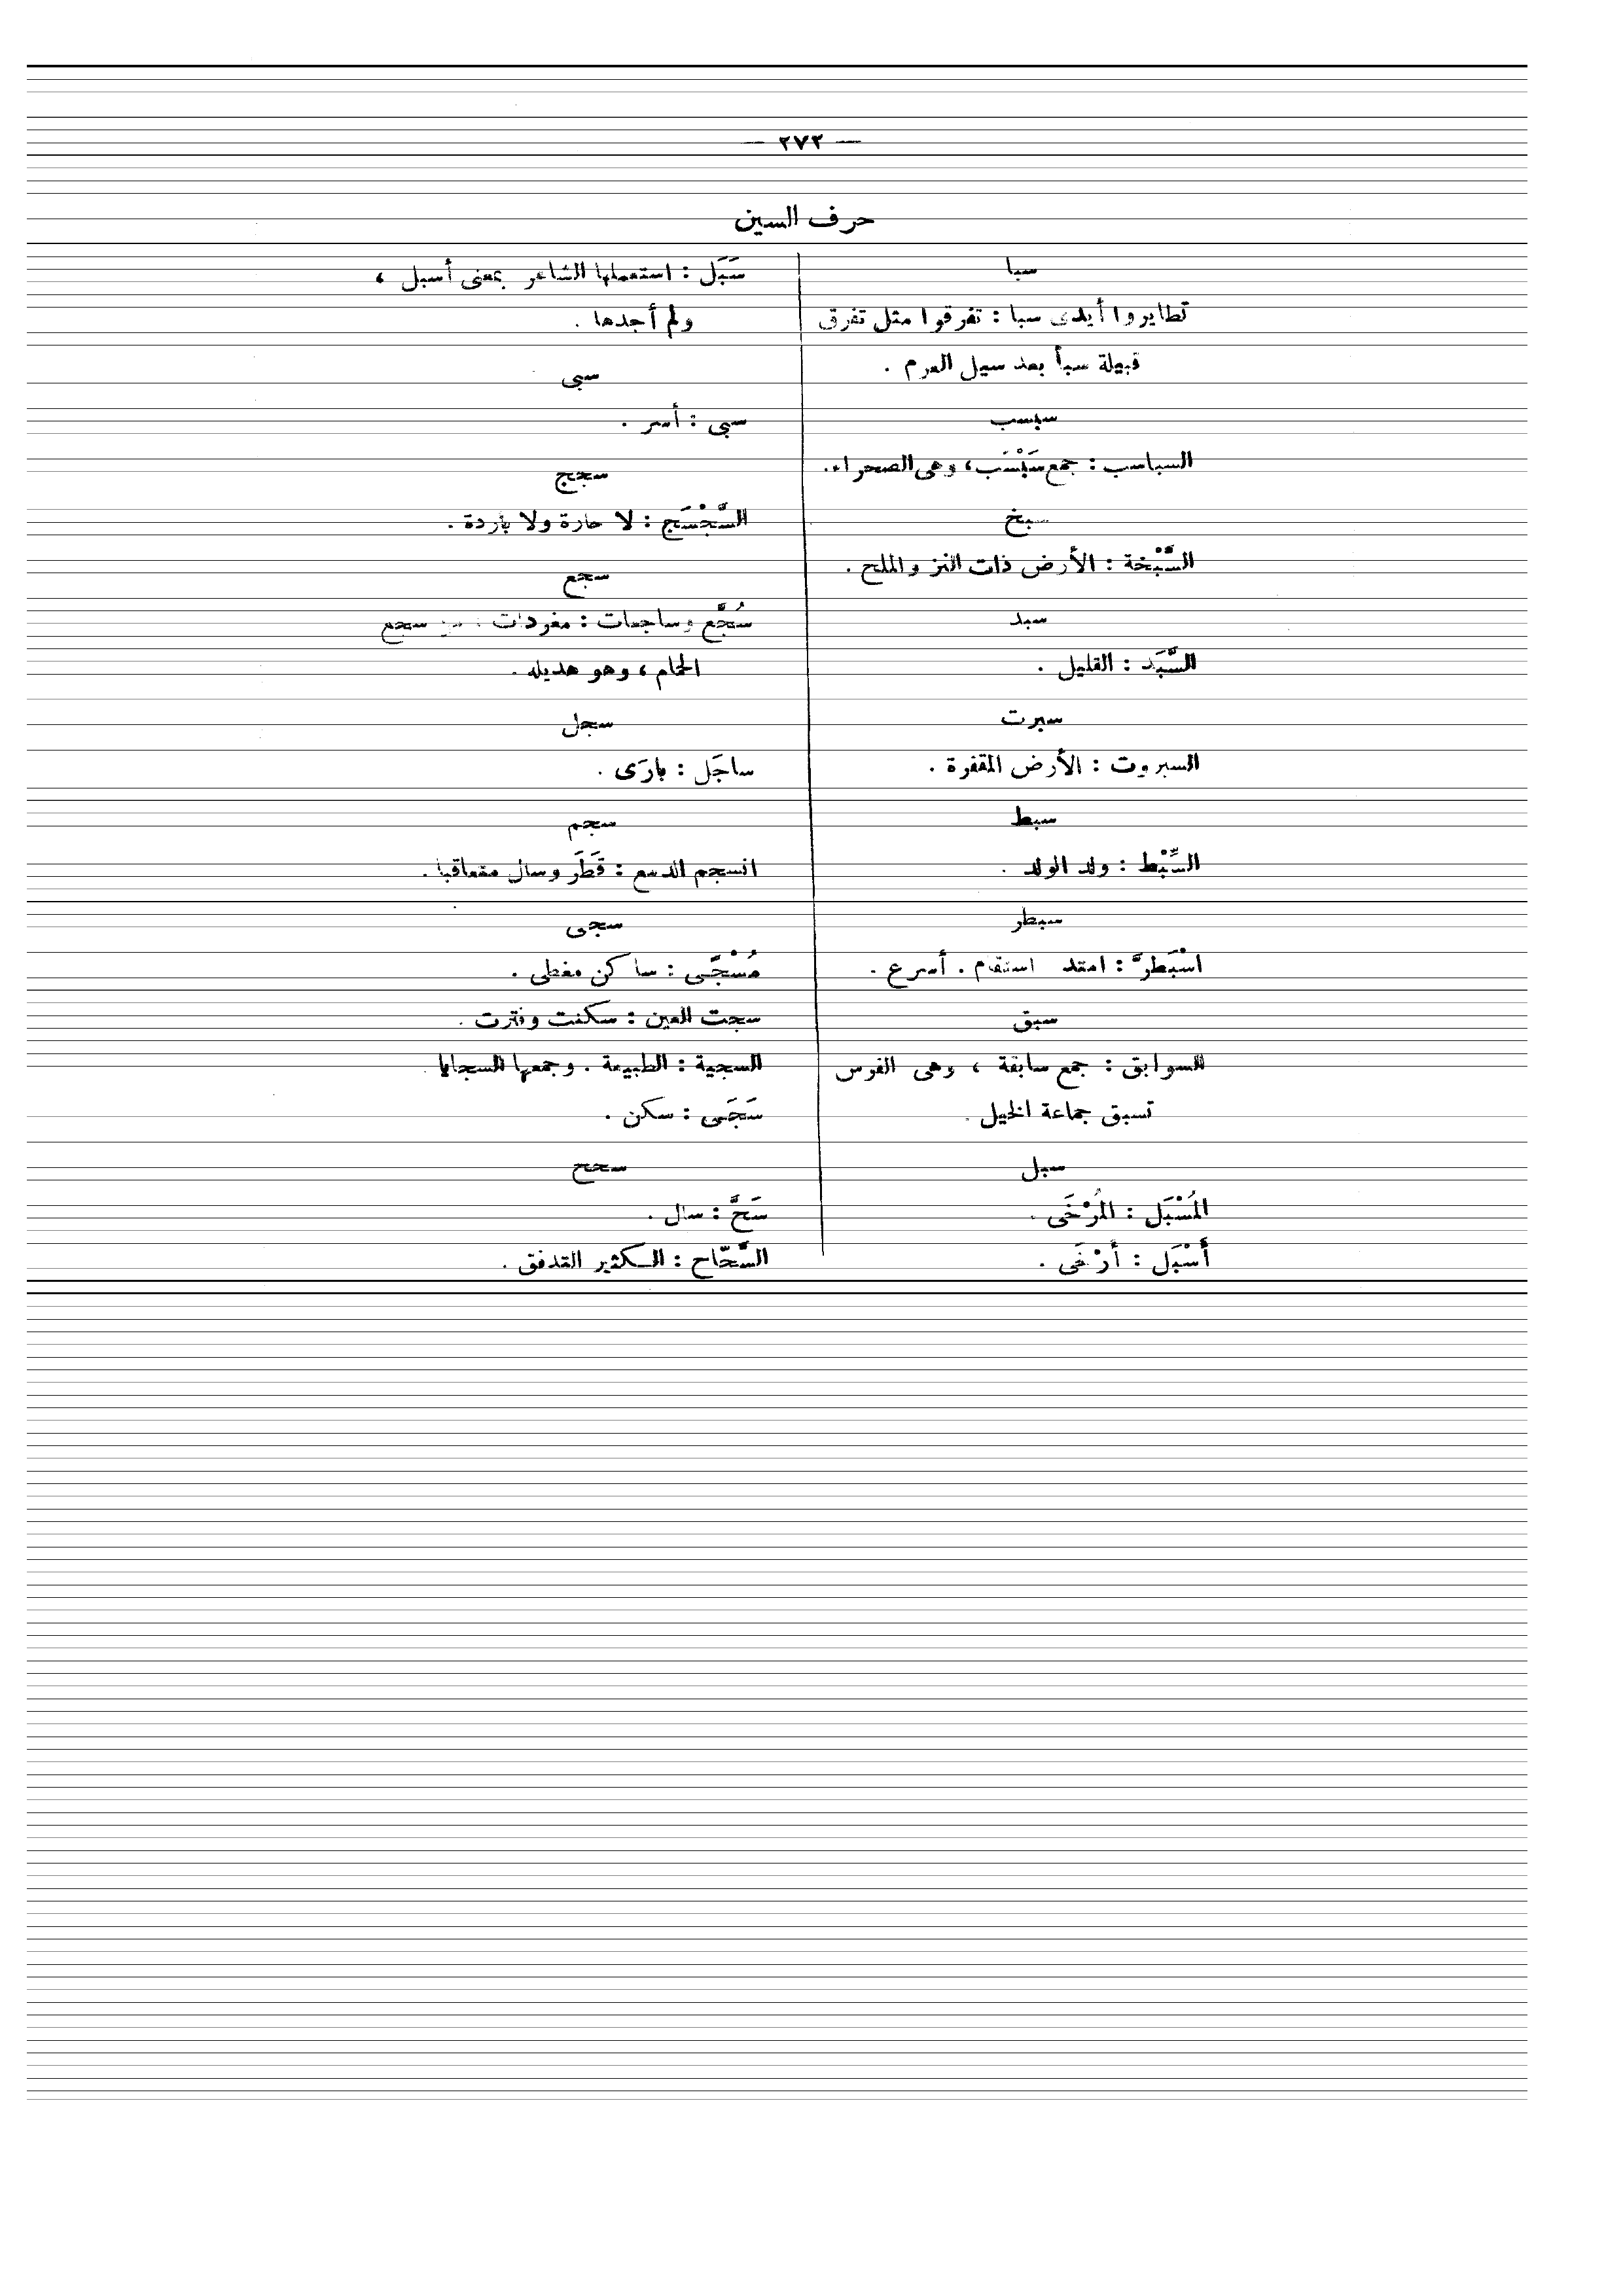 — ٢٧٣ —
حرف السين
سبا
تطايروا أيدى سبا : تفرقوا مثل تفرق
قبيلة سبأ بعد سيل العرم .
سبسب
السباسب : جمع سَبْسَب ، وهى الصحراء .
سبخ
السَّبْخة : الأرض ذات النز والملح .
سبد
السَّبَد : القليل .
سبرت
السبروت : الأرض المقفرة .
سبط
السِّبْط : ولد الولد .
سبطر
اسْبَطرَّ : امتد استقام . أسرع .
سبق
السوابق : جمع سابقة ، وهى الفرس
تسبق جماعة الخيل .
سبل
المُسْبَل : المُرْخَى .
أَسْبَل : أَرْخَى .
سَبَل : استعملها الشاعر بمعنى أسبل ،
ولم أجدها .
سبى
سبى : أسر .
سجج
السَّجْسَج : لا حارة ولا باردة .
سجع
سُجَّع وساجعات : مغردات من سجع
الحمام ، وهو هديله .
سجل
ساجَل : بارَى .
سجم
انسجم الدمع : قَطَرَ وسال متعاقبا .
سجى
مُسْجًى : ساكن مغطى .
سجت العين : سكنت وفترت .
السجية : الطبيعة . وجمعها السجايا .
سَجَى : سكن .
سحح
سَحَّ : سال .
السَّحّاح : الكثير التدفق .